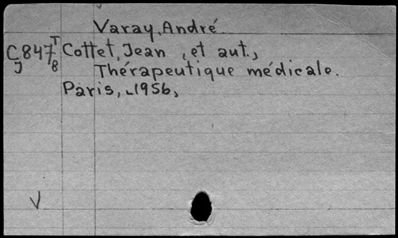 Varay, André
C847T Cottet, Jean , et aut.,
J 8 Thérapeutique médicale.
Paris, 1956,
V